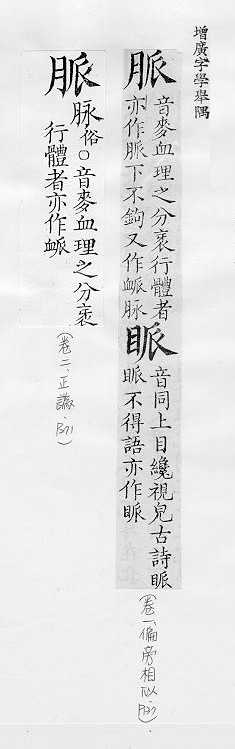 增廣字學舉隅
脈
音麥血理之分衺行體者
亦作脈下不鉤又作衇脉
眽
音同上目纔視皃古詩眽
眽不得語亦作眿
(卷一、偏旁相似、
脈
脉俗○音麥血理之分衺
行體者亦作衇
(卷二、正譌、